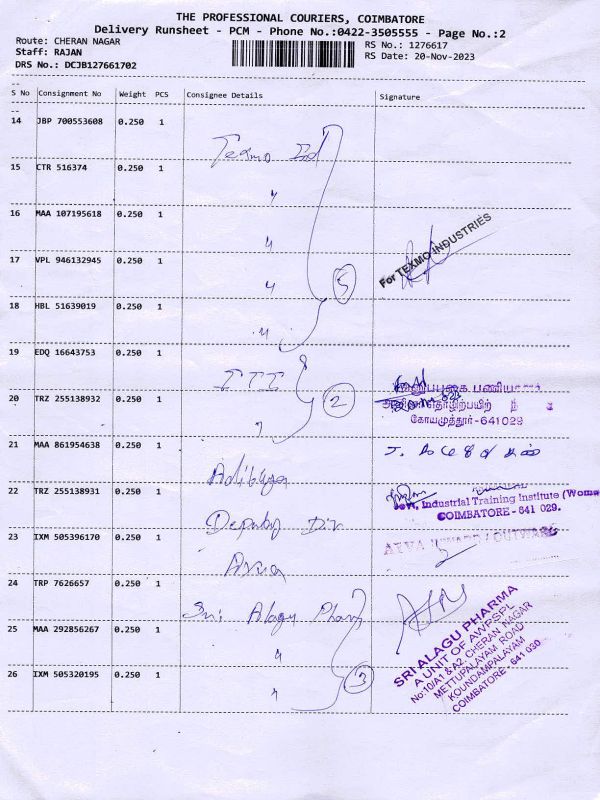 THE PROFESSIONAL COURIERS, COIMBATORE
Delivery Runsheet - PCM - Phone No.:0422-3505555 - Page No.:2
Route: CHERAN NAGAR
RS No.: 1276617
Staff: RAJAN
RS Date: 20-Nov-2023
DRS No.: DCJB127661702
S No Consignment No Weight PCS Consignee Details Signature
14 JBP 700553608 0.250 1
Texmo Ind
15 CTR 516374 0.250 1
"
16 MAA 107195618 0.250 1
"
For TEXMO INDUSTRIES
17 VPL 946132945 0.250 1
" 5
18 HBL 51639019 0.250 1
"
19 EDQ 16643753 0.250 1
ITI
20 TRZ 255138932 0.250 1
" 2
கோயமுத்தூர்-641029
21 MAA 861954638 0.250 1
Aditya
22 TRZ 255138931 0.250 1
Industrial Training Institute
COIMBATORE - 641 029.
Deputy Dir
23 IXM 505396170 0.250 1
24 TRP 7626657 0.250 1
Sri Alagu Pharma
25 MAA 292856267 0.250 1
"
26 IXM 505320195 0.250 1
" 3
SRI ALAGU PHARMA
A UNIT OF AWPSPL
No:10/A1 &A2, CHERAN NAGAR
METTUPALAYAM ROAD
KOUNDAMPALAYAM
COIMBATORE - 641 030